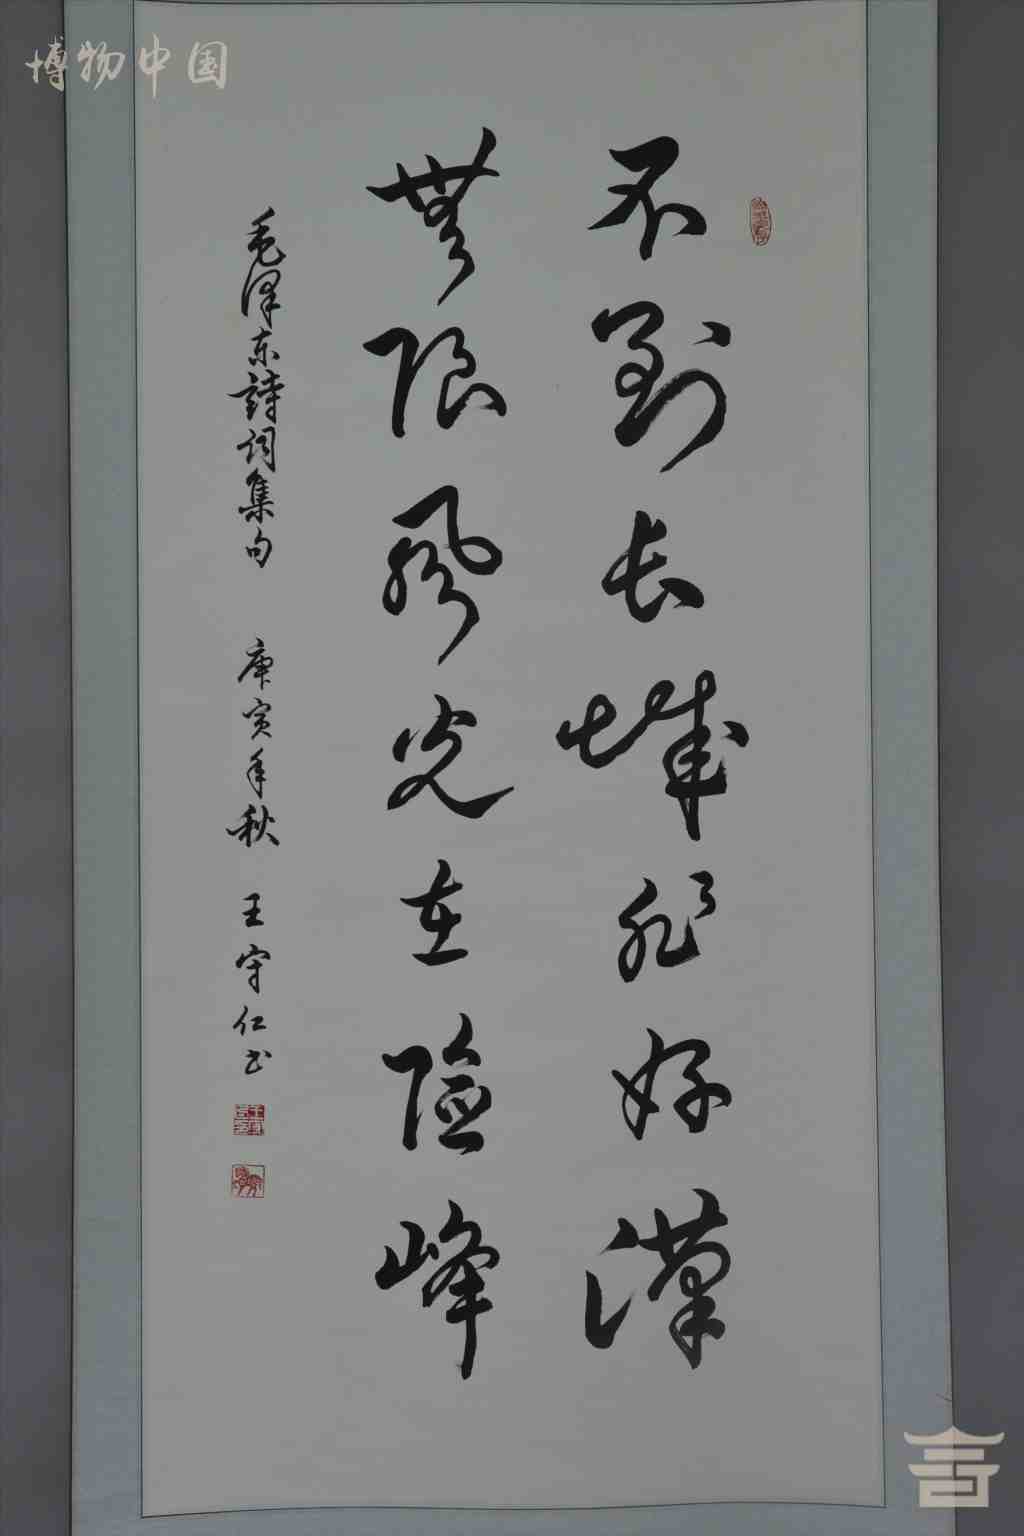 博物中国
不到长城非好漢
無限风光在險峰
毛泽东詩词集句 庚寅年秋 王守仁书